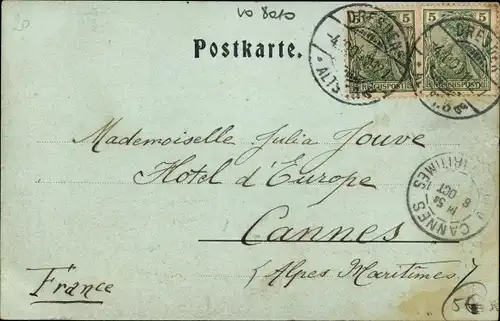 20
VO 8010
Postkarte.
DRESDEN
ALTST.
5 5
REICHSPOST
REICHSPOST
DRESDEN
Mademoiselle Julia Jouve
Hotel d'Europe
Cannes
(Alpes Maritimes)
France
CANNES
MARITIMES
8
OCT
5€